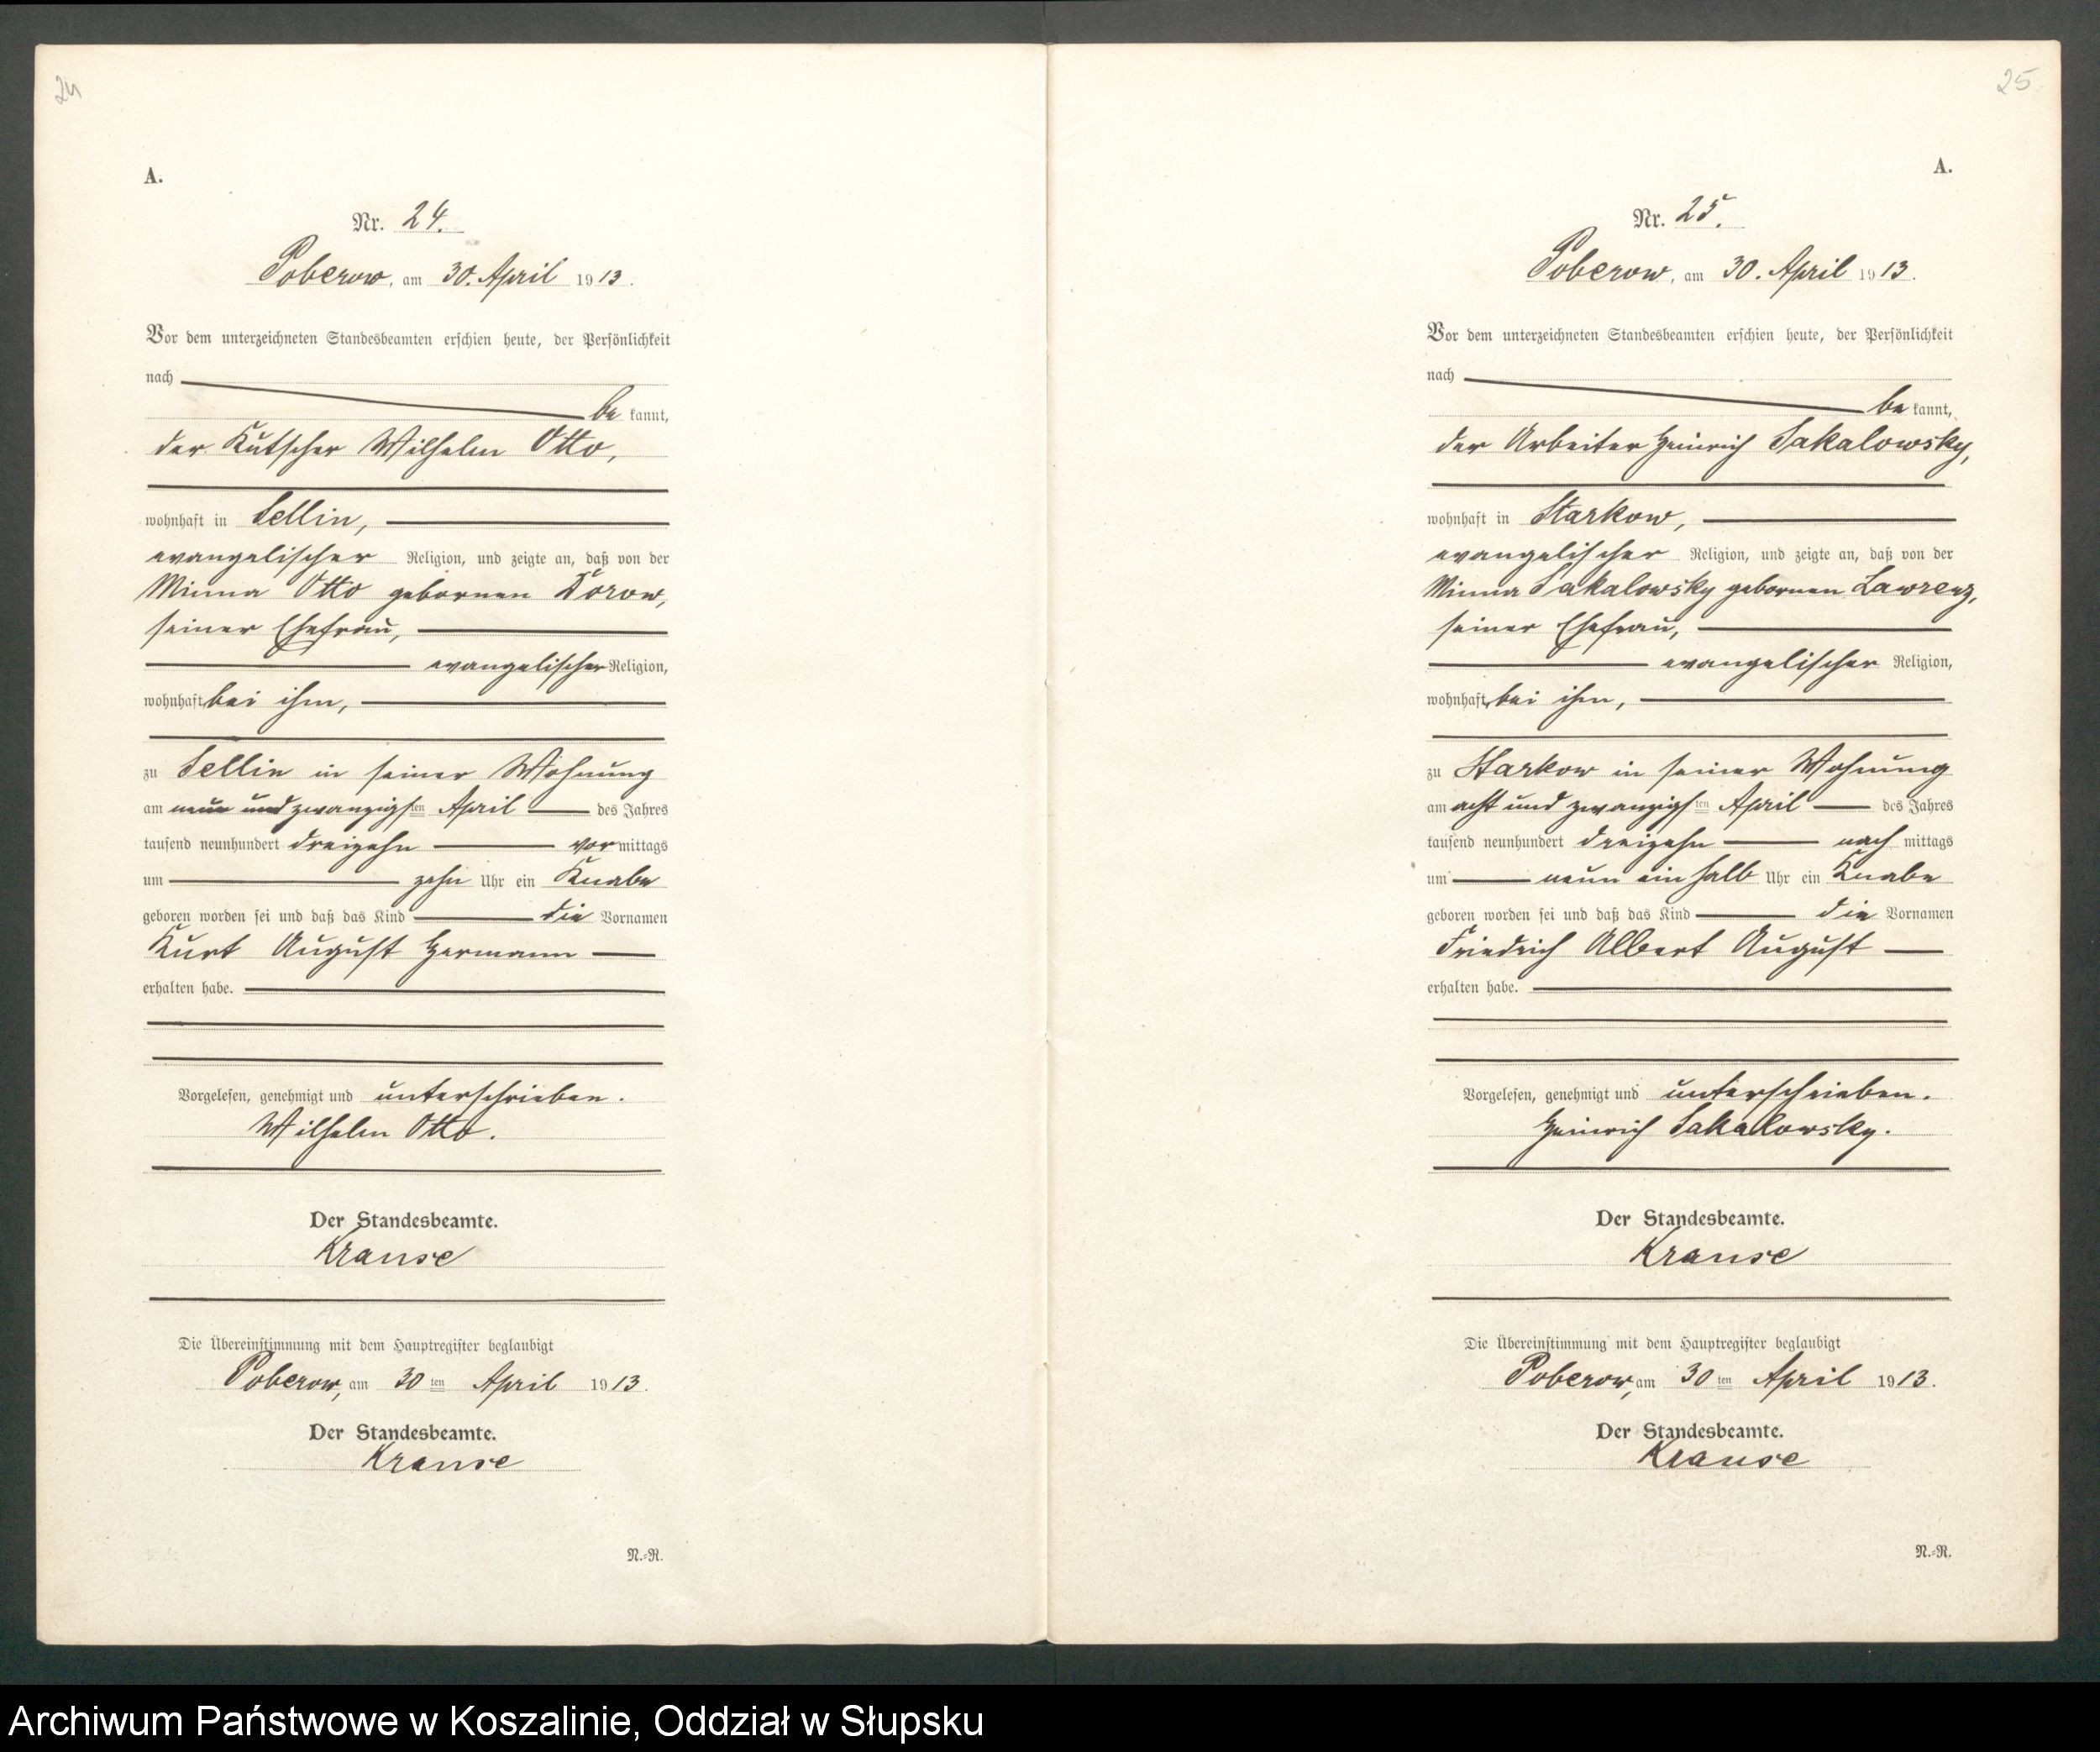 24
A.
Nr. 24.
Poberow, am 30. April 1913.
Vor dem unterzeichneten Standesbeamten erschien heute, der Persönlichkeit
nach
be kannt,
der Kutscher Wilhelm Otto,
wohnhaft in Sellin,
evangelischer Religion, und zeigte an, daß von der
Minna Otto gebornen Dorow,
seiner Ehefrau,
evangelischer Religion,
wohnhaft bei ihm,
zu Sellin in seiner Wohnung
am neun und zwanzigsten April des Jahres
tausend neunhundert dreizehn vormittags
um zehn Uhr ein Knabe
geboren worden sei und daß das Kind die Vornamen
Kurt August Hermann
erhalten habe.
Vorgelesen, genehmigt und unterschrieben.
Wilhelm Otto.
Der Standesbeamte.
Krause
Die Übereinstimmung mit dem Hauptregister beglaubigt
Poberow, am 30 ten April 1913.
Der Standesbeamte.
Krause
N.-R.
25
A.
Nr. 25.
Poberow, am 30. April 1913.
Vor dem unterzeichneten Standesbeamten erschien heute, der Persönlichkeit
nach
be kannt,
der Arbeiter Heinrich Sakalowsky,
wohnhaft in Starkow,
evangelischer Religion, und zeigte an, daß von der
Minna Sakalowsky gebornen Lawrenz,
seiner Ehefrau,
evangelischer Religion,
wohnhaft bei ihm,
zu Starkow in seiner Wohnung
am acht und zwanzigsten April des Jahres
tausend neunhundert dreizehn nach mittags
um neun ein halb Uhr ein Knabe
geboren worden sei und daß das Kind die Vornamen
Friedrich Albert August
erhalten habe.
Vorgelesen, genehmigt und unterschrieben.
Heinrich Sakalowsky.
Der Standesbeamte.
Krause
Die Übereinstimmung mit dem Hauptregister beglaubigt
Poberow, am 30 ten April 1913.
Der Standesbeamte.
Krause
N.-R.
Archiwum Państwowe w Koszalinie, Oddział w Słupsku